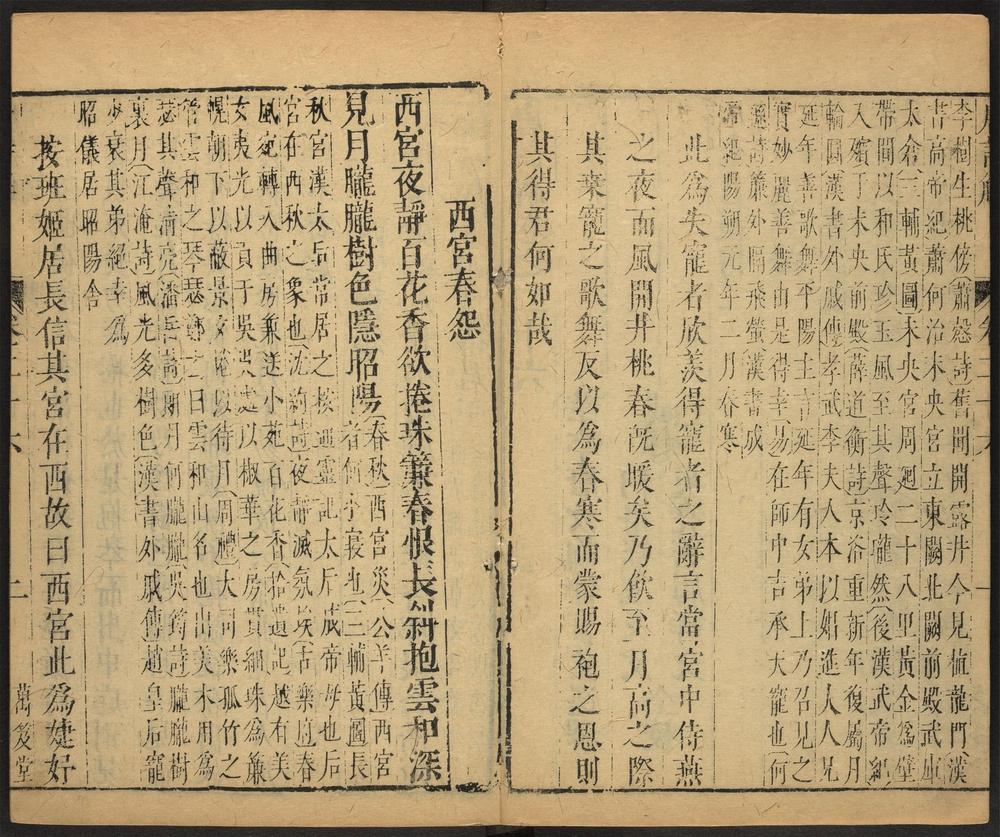 唐詩解 卷二十六 一
李樹生桃傍蕭慤詩舊聞開露井今見植龍門漢
書高帝紀蕭何治未央宮立東闕北闕前殿武庫
太倉三輔黃圖未央宮周迴二十八里黃金為壁
帶間以和氏珍玉風至其聲玲瓏然後漢武帝紀
入殯于未央前殿薛道衡詩京洛重新年復屬月
輪圓漢書外戚傳孝武李夫人本以娼進人人兄
延年善歌舞平陽主言延年有女弟上乃召見之
實妙麗善舞由是得幸易在師中吉承天寵也何
遜詩簾外隔飛螢漢書成
帝紀陽朔元年二月春寒
此為失寵者欣羨得寵者之辭言當宮中侍燕
之夜而風開井桃春既暖矣乃飲至月高之際
其乗寵之歌舞反以為春寒而蒙賜袍之恩則
其得君何如哉
西宮春怨
西宮夜靜百花香欲捲珠簾春恨長斜抱雲和深
見月朧朧樹色隱昭陽春秋西宮災公羊傳西宮
者何小寢也三輔黃圖長
秋宮漢太后常居之按通靈記太后成帝母也后
宮在西秋之象也沈約詩夜靜滅氛埃古樂府春
風宛轉入曲房兼送小苑百花香拾遺記越有美
女夷光以貢于吳吳處以椒華之房貫細珠為簾
幌朝下以蔽景夕捲以待月周禮大司樂孤竹之
管雲和之琴瑟鄭云曰雲和山名也出美木用為
瑟其聲清亮潘岳詩朗月何朧朧吳鈞詩朧朧樹
裏月江淹詩風光多樹色漢書外戚傳趙皇后寵
少衰其弟絕幸為
昭儀居昭陽舍
按班姬居長信其宮在西故曰西宮此為婕妤
卷二十六 二 萬笈堂